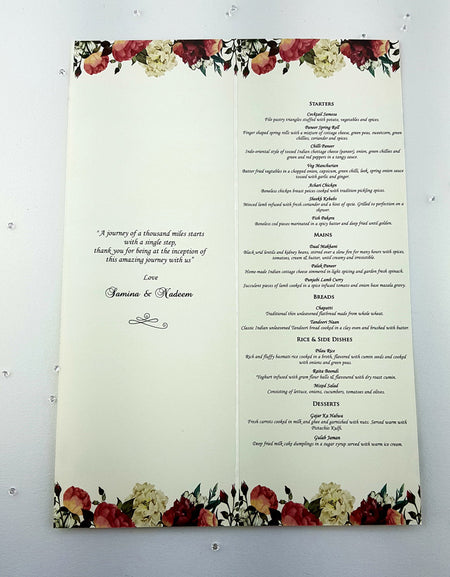 "A journey of a thousand miles starts
with a single step,
thank you for being at the inception of
this amazing journey with us"
Love
Samina & Nadeem
STARTERS
Cocktail Samosa
Filo pastry triangles stuffed with potato, vegetables and spices.
Paneer Spring Roll
Finger shaped spring rolls with a mixture of cottage cheese, green peas, sweetcorn, green
chillies, coriander and spices.
Chilli Paneer
Indo-oriental style of tossed Indian cottage cheese (paneer), onion, green chillies and
green and red peppers in a tangy sauce.
Veg Manchurian
Batter fried vegetables in a chopped onion, capsicum, green chilli, leek, spring onion sauce
tossed with garlic and ginger.
Achari Chicken
Boneless chicken breast pieces cooked with tradition pickling spices.
Sheekh Kebabs
Minced lamb infused with fresh coriander and a hint of spice. Grilled to perfection on a
skewer.
Fish Pakora
Boneless cod pieces marinated in a spicy batter and deep fried until golden.
MAINS
Daal Makhani
Black urid lentils and kidney beans, stirred over a slow fire for many hours with spices,
tomatoes, cream & butter, until creamy and irresistible.
Palak Paneer
Home made Indian cottage cheese simmered in light spicing and garden fresh spinach.
Punjabi Lamb Curry
Succulent pieces of lamb cooked in a spice infused tomato and onion base masala gravy.
BREADS
Chapatti
Traditional thin unleavened flatbread made from whole wheat.
Tandoori Naan
Classic Indian unleavened Tandoori bread cooked in a clay oven and brushed with butter.
RICE & SIDE DISHES
Pilau Rice
Rich and fluffy basmati rice cooked in a broth, flavored with cumin seeds and cooked
with onions and green peas.
Raita Boondi
Yoghurt infused with gram flour balls & flavoured with dry roast cumin.
Mixed Salad
Consisting of lettuce, onions, cucumbers, tomatoes and olives.
DESSERTS
Gajar Ka Halwa
Fresh carrots cooked in milk and ghee and garnished with nuts. Served warm with
Pistachio Kulfi.
Gulab Jaman
Deep fried milk cake dumplings in a sugar syrup served with warm ice cream.